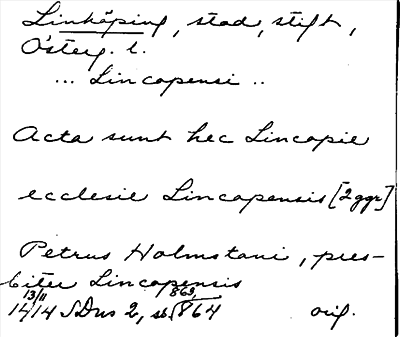 Linköping, stad, stift,
Österg. l.
... Lincopensi ..
Acta sunt hec Lincopie
ecclesie Lincopensis [2 ggr]
Petrus Holmstani, pres-
biter Lincopensis
13/11 863,
1414 SDns 2, sb 864 orig.